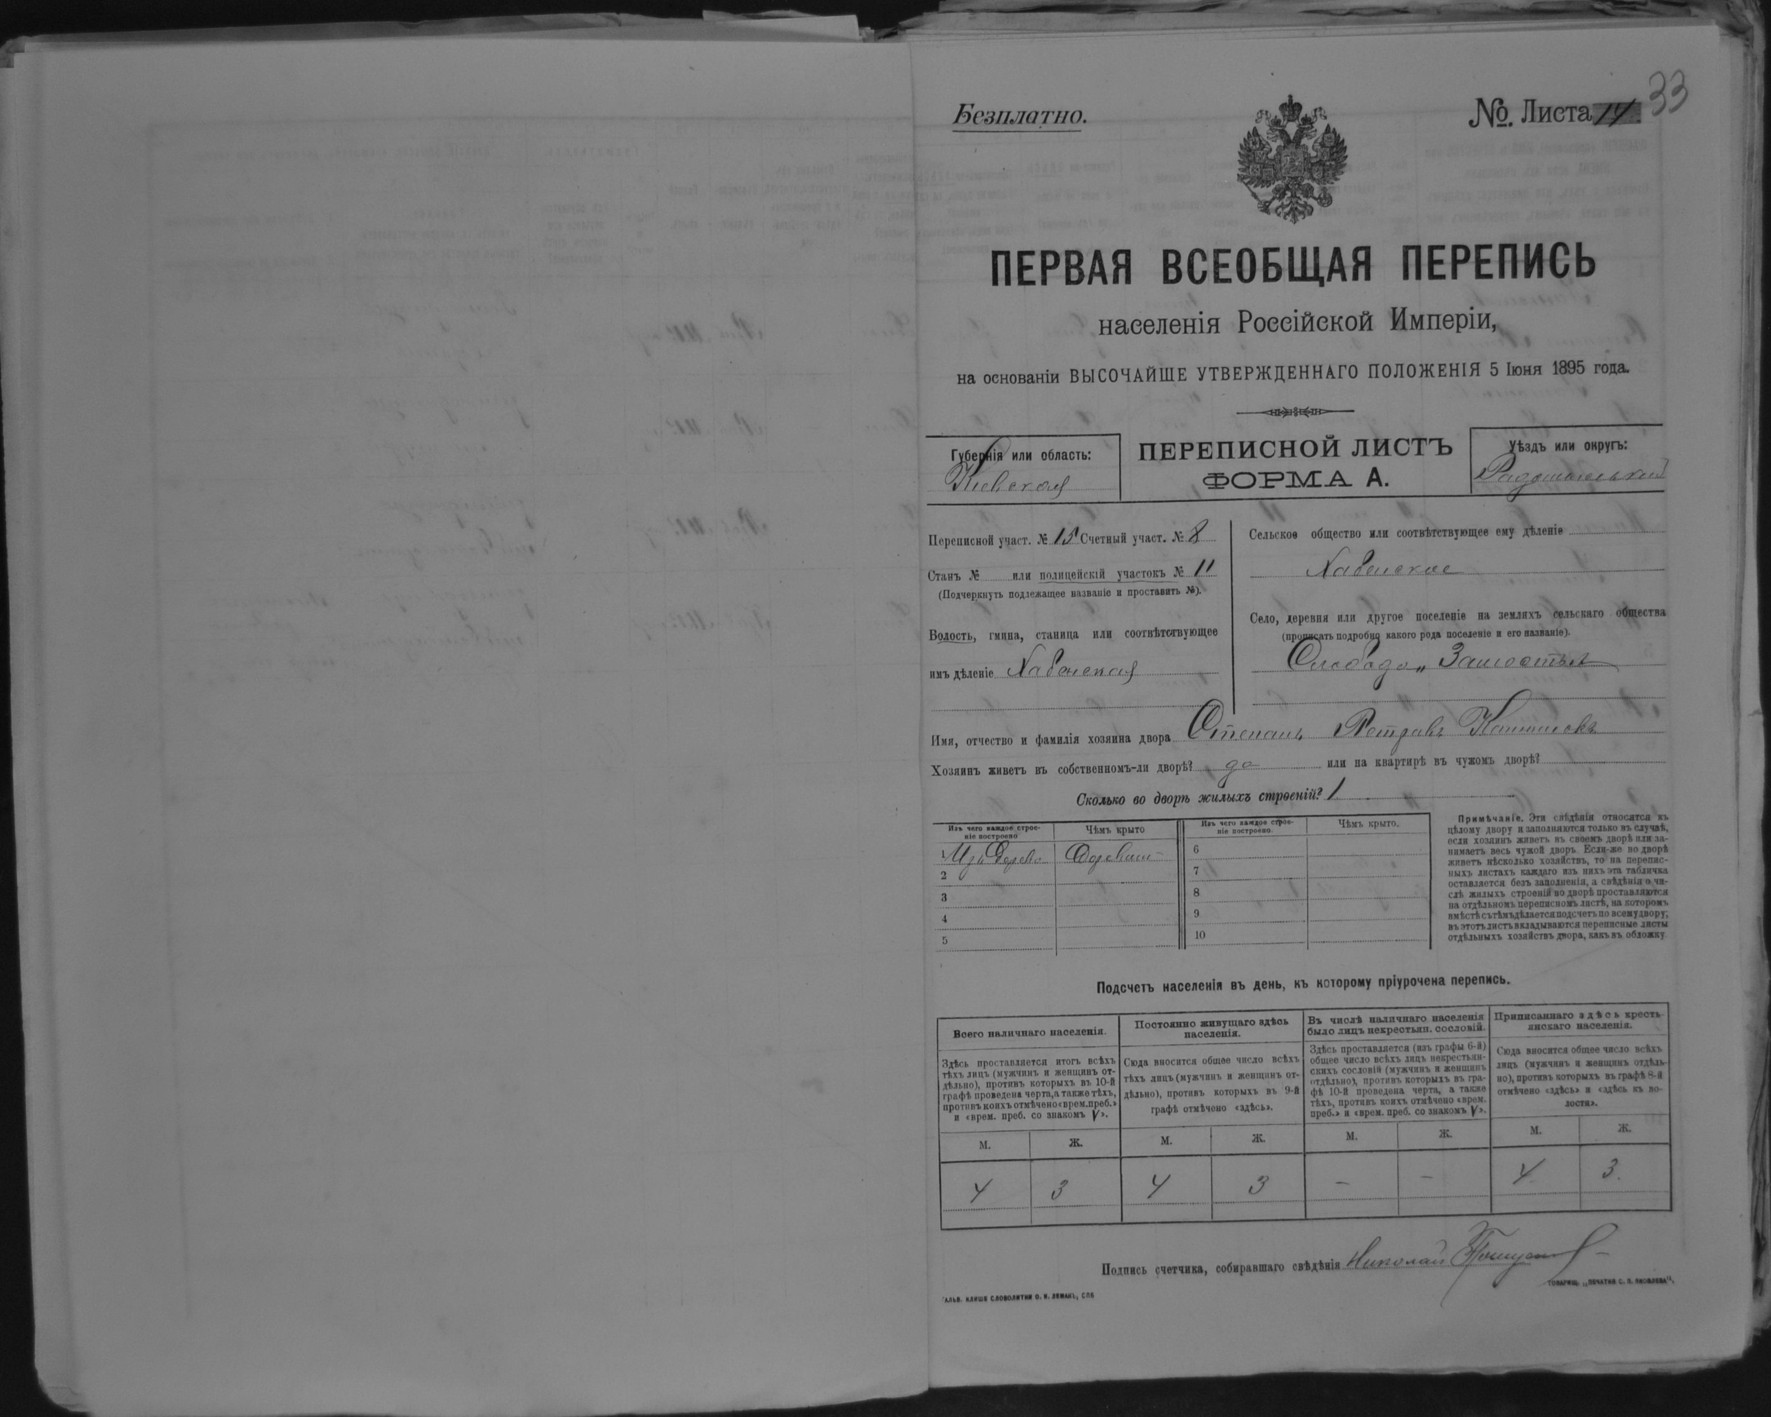 Безплатно.
№ Листа 14.
33
ПЕРВАЯ ВСЕОБЩАЯ ПЕРЕПИСЬ
населенія Россійской Имперіи,
на основаніи ВЫСОЧАЙШЕ УТВЕРЖДЕННАГО ПОЛОЖЕНІЯ 5 Іюня 1895 года.
Губернія или область:
Кіевская
ПЕРЕПИСНОЙ ЛИСТЪ
ФОРМА А.
Уѣздъ или округъ:
Радомысльскій
Переписной участ. № 15 Счетный участ. № 8
Станъ № или полицейскій участокъ № 11
(Подчеркнуть подлежащее названіе и проставить №).
Волость, гмина, станица или соотвѣтствующее
имъ дѣленіе Хабенская
Сельское общество или соотвѣтствующее ему дѣленіе
Хабенское
Село, деревня или другое поселеніе на земляхъ сельскаго общества
(прописать подробно какого рода поселеніе и его названіе).
Слобода „Замостье
Имя, отчество и фамилія хозяина двора Степанъ Петровъ
Хозяинъ живетъ въ собственномъ-ли дворѣ? да или на квартирѣ въ чужомъ дворѣ?
Сколько во дворѣ жилыхъ строеній? 1
Изъ чего каждое строе-
ніе построено
Чѣмъ крыто
Изъ чего каждое строе-
ніе построено.
Чѣмъ крыто.
Изъ дерева
2
3
4
5
6
7
8
9
10
Примѣчаніе. Эти свѣдѣнія относятся къ
цѣлому двору и заполняются только въ случаѣ,
если хозяинъ живетъ въ своемъ дворѣ или за-
нимаетъ весь чужой дворъ. Если-же во дворѣ
живетъ нѣсколько хозяйствъ, то на перепис-
ныхъ листахъ каждаго изъ нихъ эта табличка
оставляется безъ заполненія, а свѣдѣнія о чи-
слѣ жилыхъ строеній во дворѣ проставляются
на отдѣльномъ переписномъ листѣ, на которомъ
вмѣстѣ съ тѣмъ дѣлается подсчетъ по всему двору;
въ этотъ листъ вкладываются переписные листы
отдѣльныхъ хозяйствъ двора, какъ въ обложку
Подсчетъ населенія въ день, къ которому пріурочена перепись.
Всего наличнаго населенія.
Здѣсь проставляется итогъ всѣхъ
тѣхъ лицъ (мужчинъ и женщинъ от-
дѣльно), противъ которыхъ въ 10-й
графѣ проведена черта, а также тѣхъ,
противъ коихъ отмѣчено «врем. преб.»
и «врем. преб. со знакомъ V».
Постоянно живущаго здѣсь
населенія.
Сюда вносится общее число всѣхъ
тѣхъ лицъ (мужчинъ и женщинъ от-
дѣльно), противъ которыхъ въ 9-й
графѣ отмѣчено «здѣсь».
Въ числѣ наличнаго населенія
было лицъ некрестьян. сословій.
Здѣсь проставляется (изъ графы 6-й)
общее число всѣхъ лицъ некрестьян-
скихъ сословій (мужчинъ и женщинъ
отдѣльно), противъ которыхъ въ гра-
фѣ 10-й проведена черта, а также
тѣхъ, противъ коихъ отмѣчено «врем.
преб.» и «врем. преб. со знакомъ V».
Приписаннаго здѣсь кресть-
янскаго населенія.
Сюда вносится общее число всѣхъ
лицъ (мужчинъ и женщинъ отдѣль-
но), противъ которыхъ въ графѣ 8-й
отмѣчено «здѣсь» и «здѣсь въ во-
лости».
М. Ж. М. Ж. М. Ж. М. Ж.
4 3 4 3 – – 4 3.
Подпись счетчика, собиравшаго свѣдѣнія Николай
ГАЛЬВ. КЛИШЕ СЛОВОЛИТНИ О. И. ЛЕМАНЪ, СПБ
ТОВАРИЩ. „ПЕЧАТНЯ С. П. ЯКОВЛЕВА".